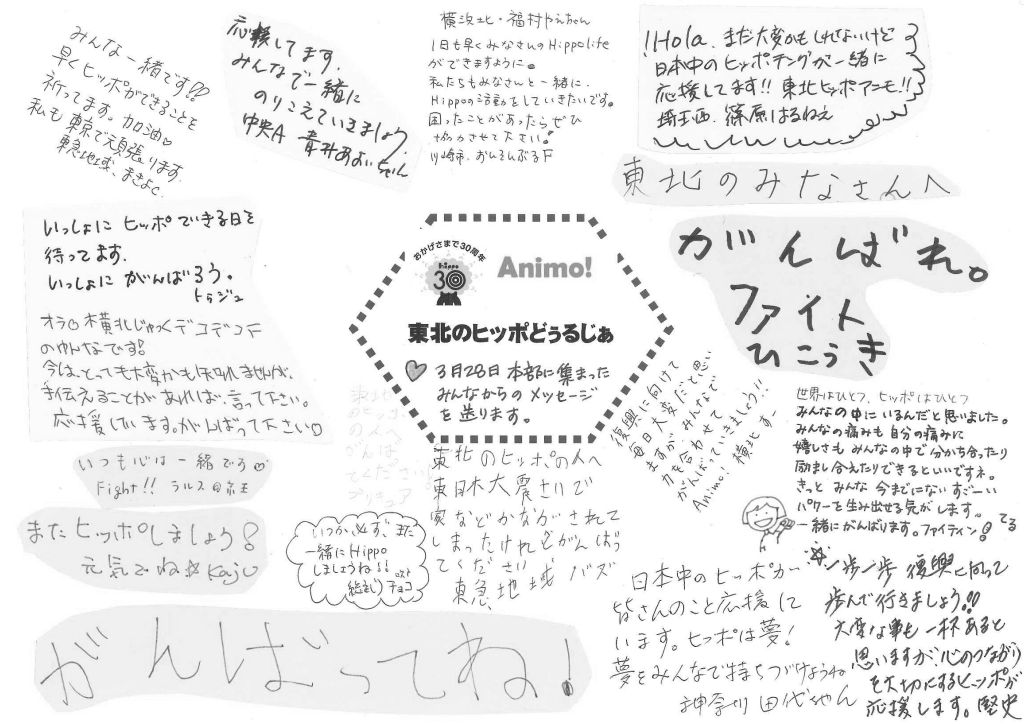 みんな一緒です!!
早くヒッポができることを
祈ってます。加油♡
私も東京で頑張ります
東急地域、まきよ
応援してます。
みんなで一緒に
のりこえていきましょう。
中央A 青井あおいちゃん
横浜北・福村やえちゃん
1日も早くみなさんのHippo life
ができますように。
私たちもみなさんと一緒に、
Hippoの活動をしていきたいです。
困ったことがあったらぜひ
協力させて下さい!
川崎市、おんろんぶるF
!!Hola、まだ大変かもしれないけど
日本中のヒッポチングが一緒に
応援してます!!東北ヒッポアニーモ!!
埼玉西 篠原はるねえ
東北のみなさんへ
がんばれ。
ファイト
ひこうき
いっしょに ヒッポ できる日を
待ってます。
いっしょに がんばろう。
トラジュ
オラ♡横北じゃっくデコデコF
のゆんなです!
今は、とっても大変かも知れませんが、
手伝えることがあれば、言って下さい。
応援しています。がんばって下さい♡
おかげさまで30周年
Hippo
30
Animo!
東北のヒッポどぅるじぁ
3月28日 本部に集まった
みんなからのメッセージ
を送ります。
復興に向けて
毎日大変だと思い
ますが、みんなで
力を合わせて
がんばっていきましょう!!
Animo! 横北 すー
世界はひとつ、ヒッポはひとつ
みんなの中にいるんだと思いました。
みんなの痛みも自分の痛みに
嬉しさも みんなの中で分かち合ったり
励まし合えたりできるといいですネ。
きっと みんな 今までにない すごーい
パワーを生み出せる気がします。
一緒にがんばります。ファイティン!
てる
東北
のヒッポ
の人へ
がんば
てください
プリキュア
いつも心は一緒です♡
Fight!! ラルス@京王
またヒッポしましょう!
元気でね☆Kaju
いつか、必ず、また
一緒にHippo
しましょうね!!
チョコ
東北のヒッポの人へ
東日本大震さいで
家などがながされて
しまったけれどがんばっ
てください
東急地域 バズ
日本中のヒッポが
皆さんのこと応援して
います。ヒッポは夢!
夢をみんなで持ちつづけようね
神奈川 田代ちゃん
☆一歩一歩 復興に向って
歩んで行きましょう!!
大変な事も一杯あると
思いますが、心のつながり
を大切にするヒッポが
応援します。歴史
がんばってね!